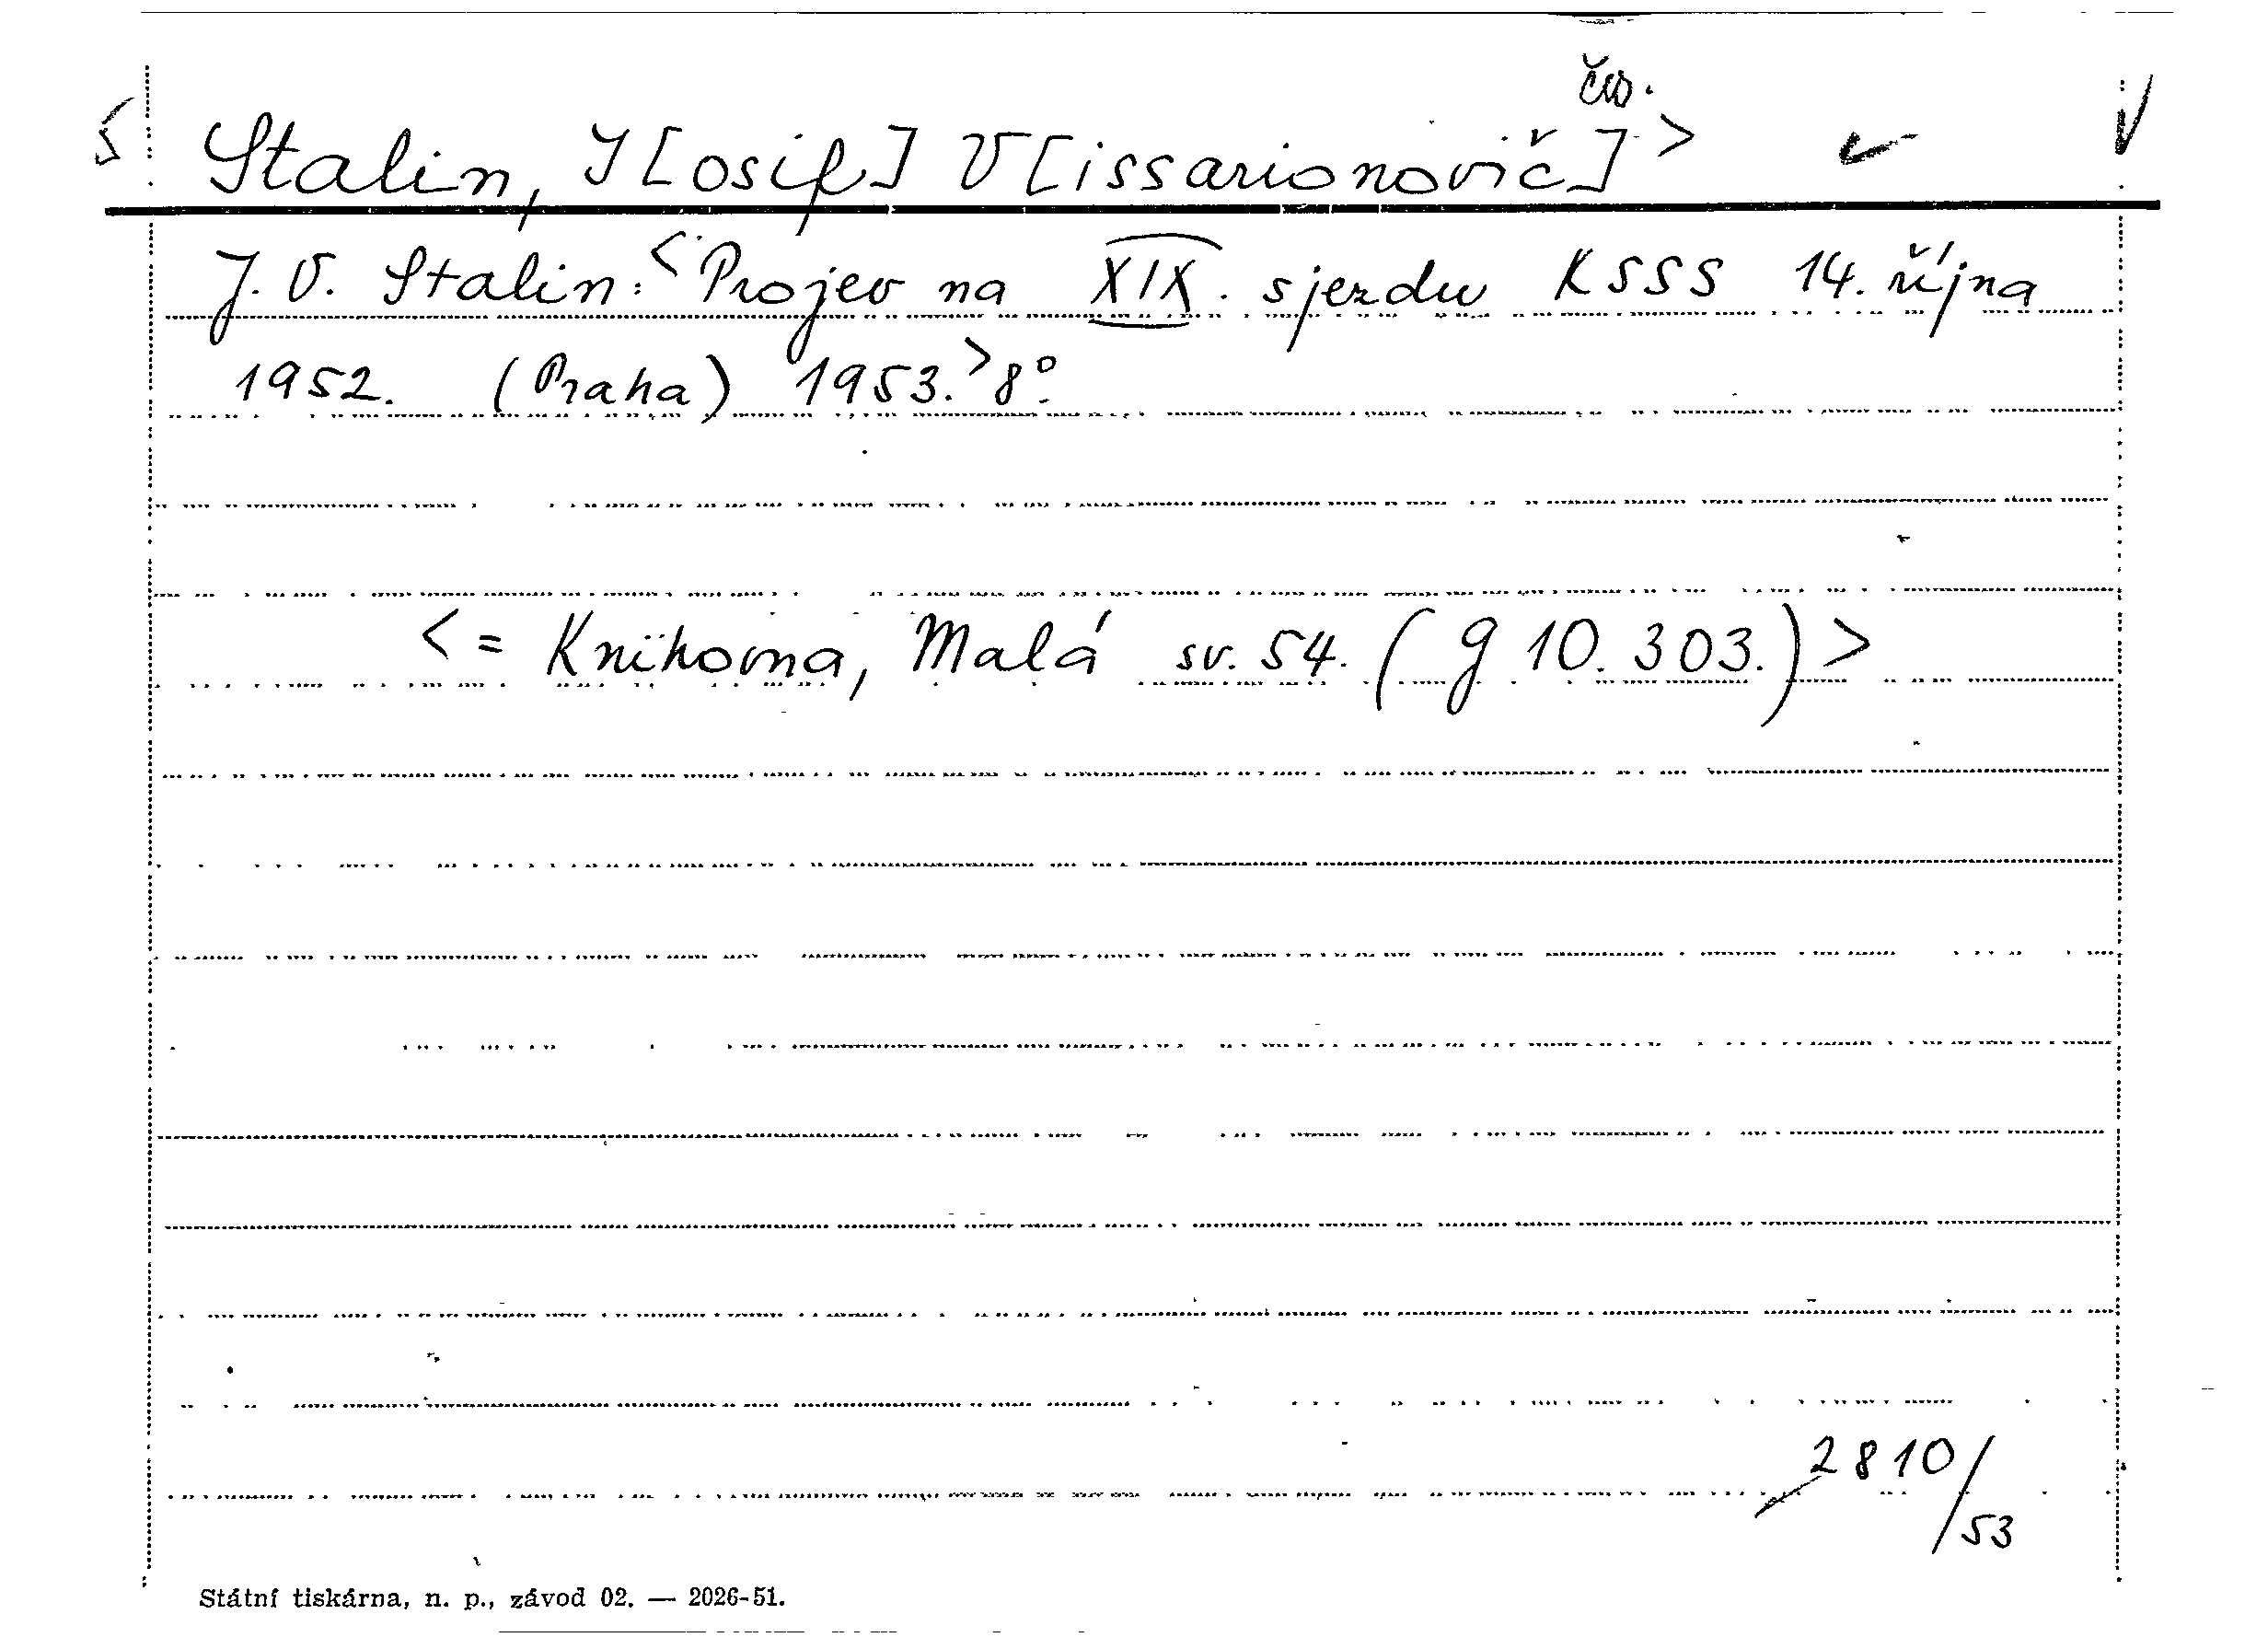 Stalin, J[osif] V[issarionovič]>
J. V. Stalin: <Projev na XIX. sjezdu KSSS 14. října
1952. (Praha) 1953.> 8°.
<= Knihovna, Malá sv. 54. (g 10. 303.)>
2810/53
Státní tiskárna, n. p., závod 02. — 2026-51.